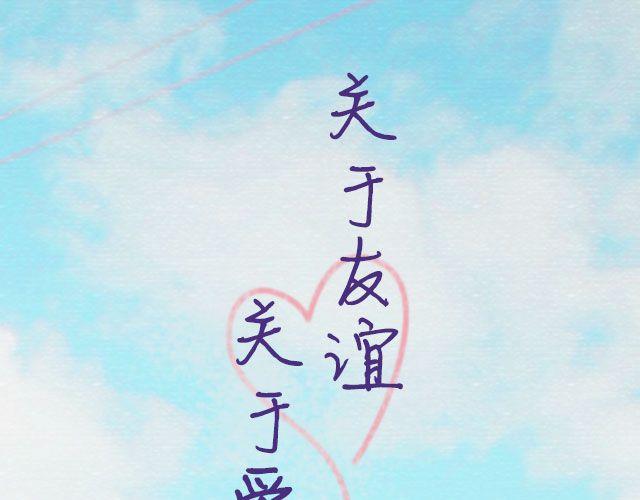 关于友谊
关于